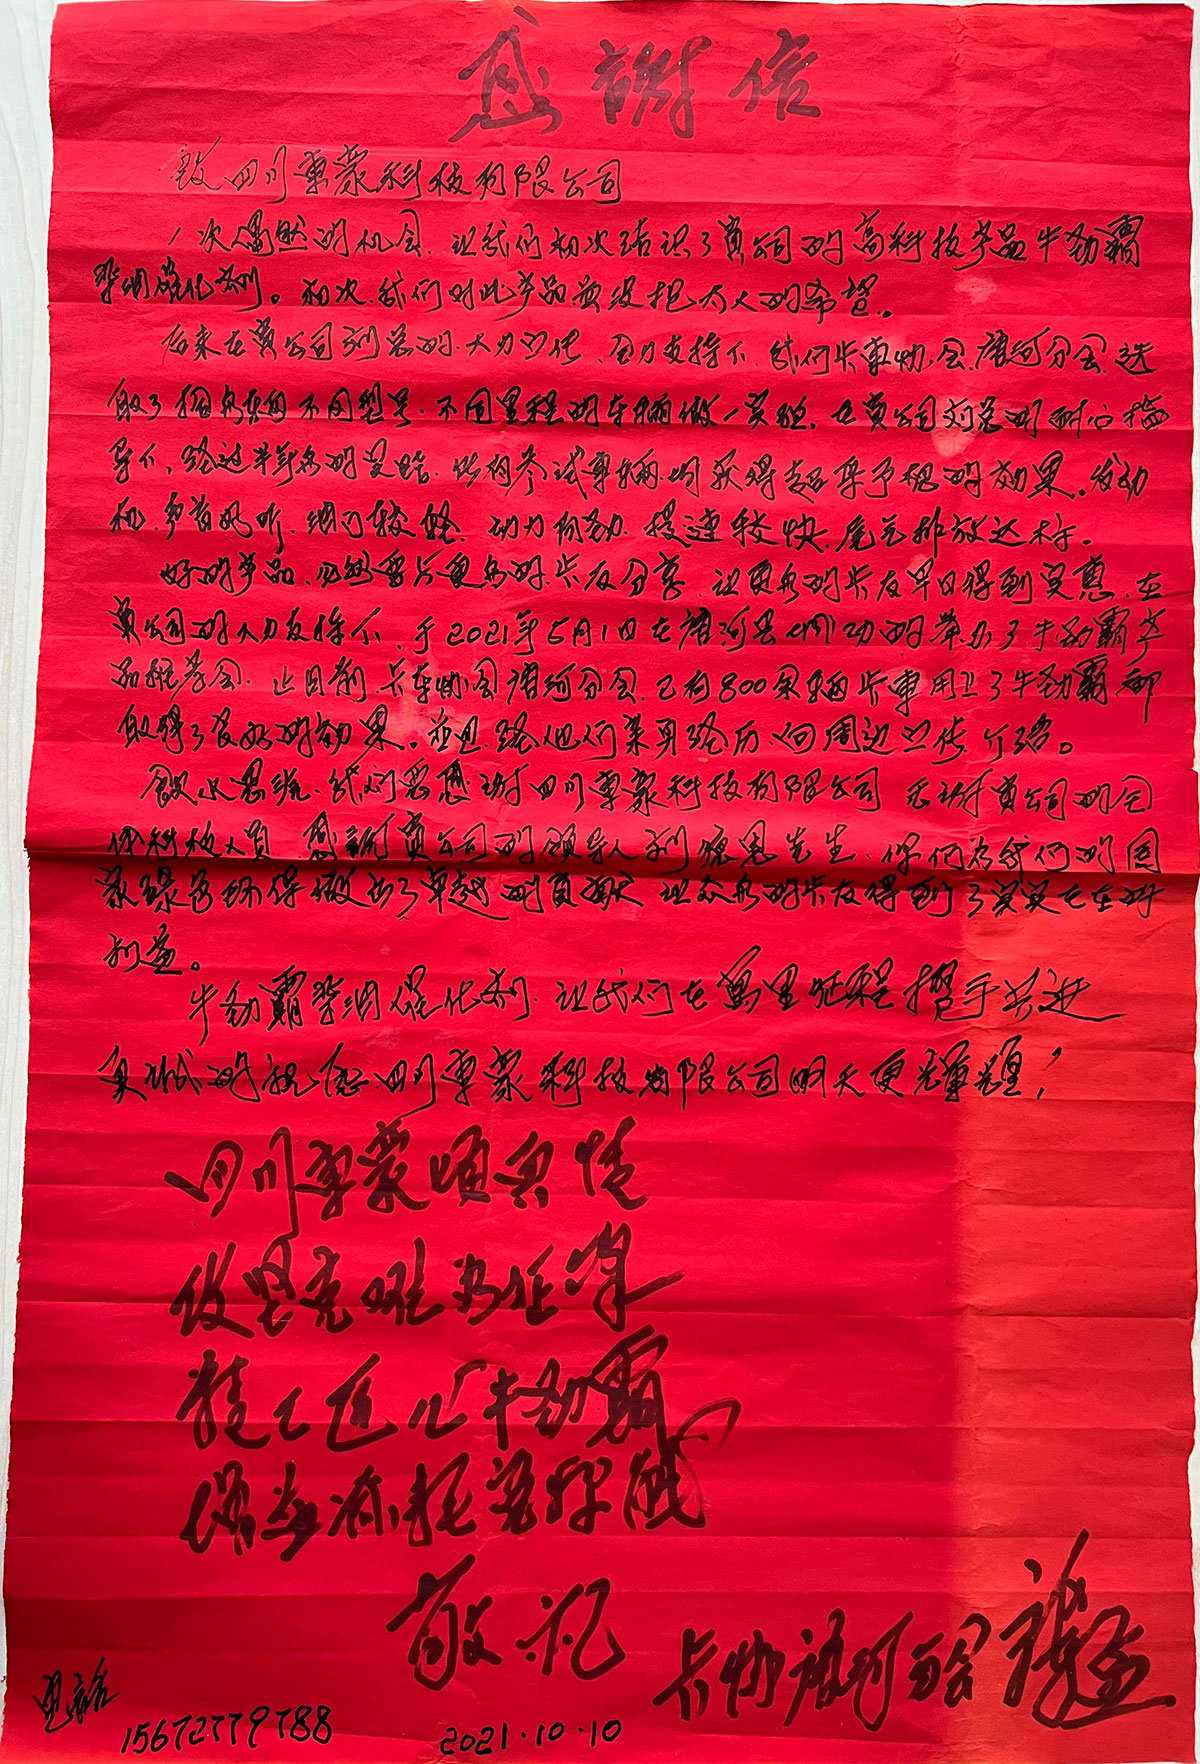 感謝信
致四川車蒙科技有限公司
1次偶然的机会.让我们初次结识了貴公司的高科技产品牛劲霸
柴油催化剂。初次.我们对此产品并没抱太大的希望。
后来在貴公司刘总的.大力宣传.全力支持下.我们卡車协会.唐河分会.选
取了描多辆不同型号.不同里程的车辆做一实验.在貴公司刘总的耐心指
导下.经过半年多的实践.所有参试車辆.均获得超乎予想的效果。发动
机.声音好听.油门较轻.动力有劲.提速较快.尾气排放达标。
好的产品.必然要与更多的.卡友分享.让更多的卡友早日得到实惠.在
貴公司的大力支持下.于2021年5月1日在唐河县成功的举办了牛劲霸产
品推荐会.止目前.卡车协会唐河分会.已有800余辆卡車用上了牛劲霸都
取得了良好的効果。并且.经他们亲身经历.向周边宣传介绍。
飲水思源.我们要感谢四川車蒙科技有限公司.感谢貴公司的全
体科技人員.感謝貴公司的领导人刘德恩先生.你们为我们的国
家环保做出了卓越的貢献.让众多的卡友得到了实实在在的
利益。
牛劲霸柴油催化剂.让我们在萬里征程攜手共进
真诚的祝愿四川車蒙科技有限公司明天更光輝耀!
四川車蒙领真情
攻坚克难为任峰
精工匠心牛劲霸
敬礼
卡协唐河分会
电话
15672779788
2021.10.10